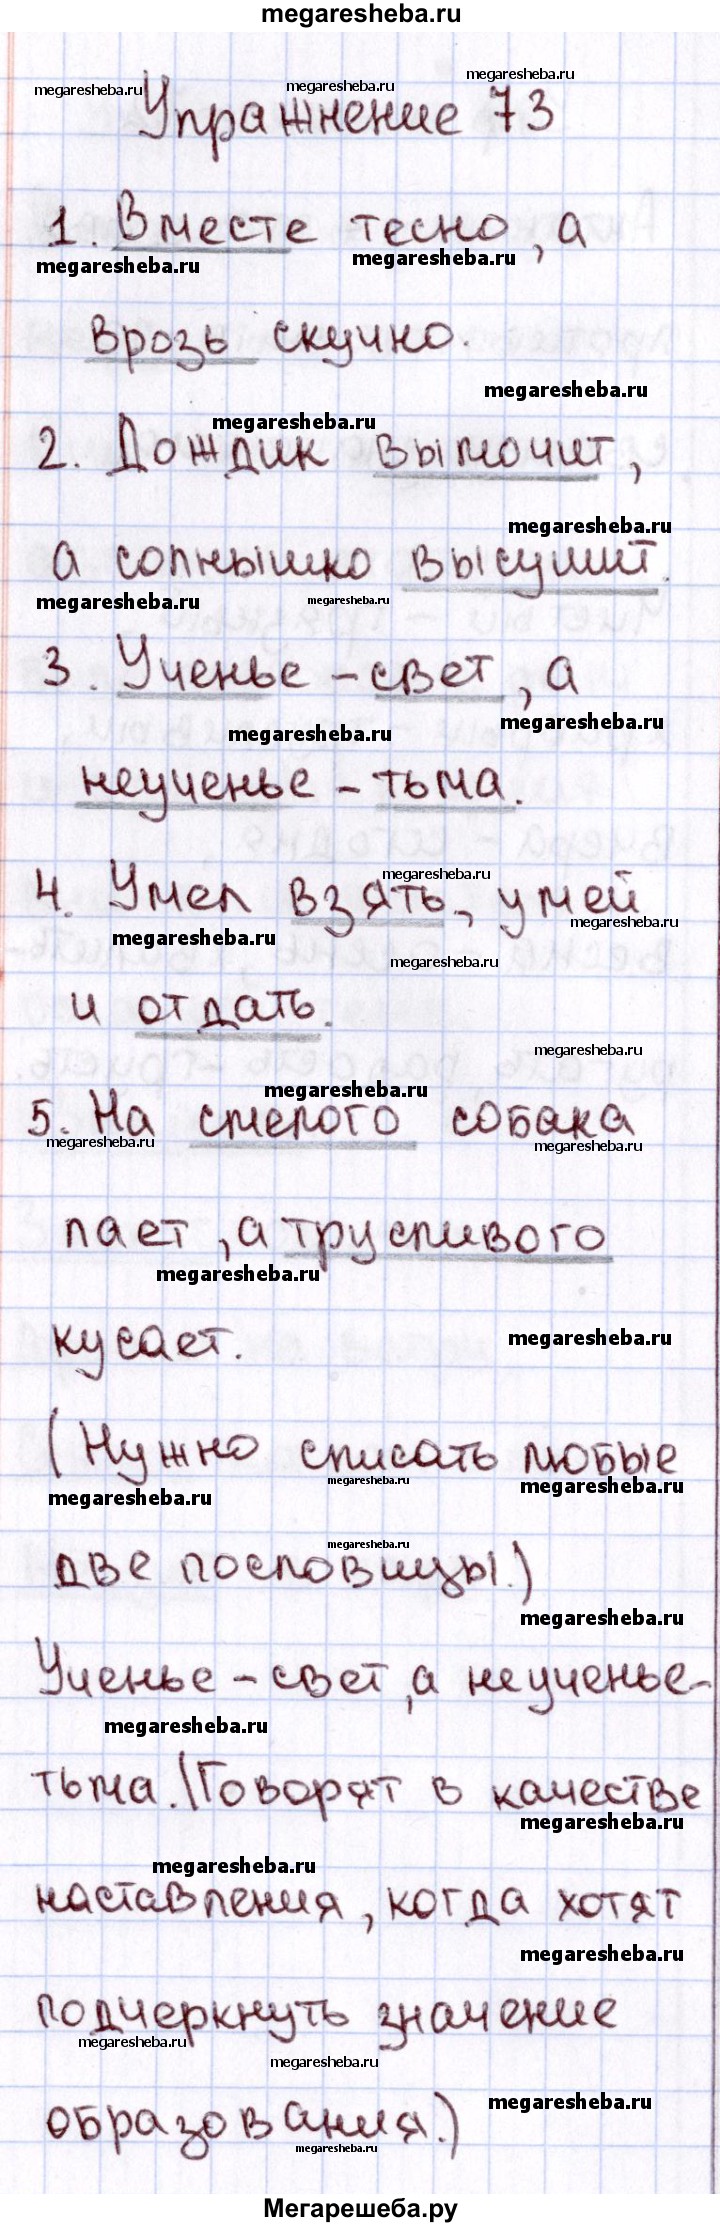 megaresheba.ru
Упражнение 73
1. Вместе тесно, а
врозь скучно.
2. Дождик вымочит,
а солнышко высушит.
3. Ученье - свет, а
неученье - тьма.
4. Умел взять, умей
и отдать.
5. На смелого собака
лает, а трусливого
кусает.
(Нужно списать любые
две пословицы.)
Ученье - свет, а неученье -
тьма. (Говорят в качестве
наставления, когда хотят
подчеркнуть значение
образования.)
Мегарешеба.ру